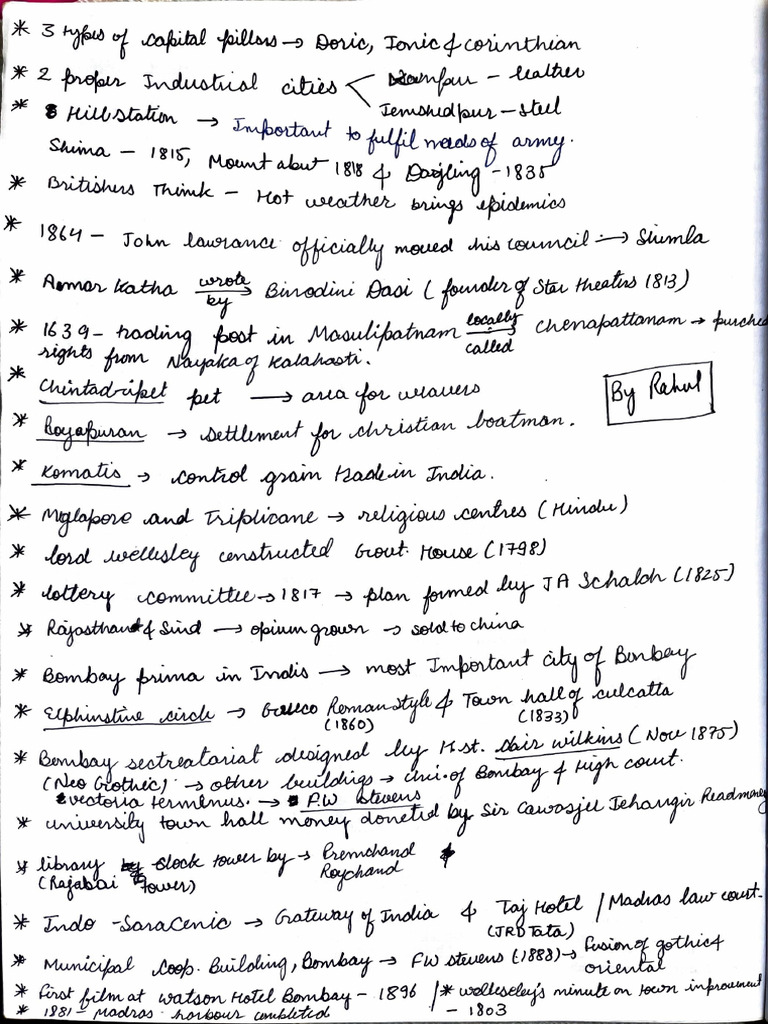 * 3 types of capital pillars → Doric, Ionic & corinthian
* 2 proper Industrial cities < Kanpur - leather
Jemshedpur - steel
* Hill station → Important to fulfil needs of army.
Shima - 1815, Mount abut 1818 & Dajling - 1835
* Britishers Think - Hot weather brings epidemics
* 1864 - John lawrance officially moved his council → Shimla
* Amar Katha wrote by → Binodini Dasi ( founder of Star theaters 1813)
* 1639 - trading post in Masulipatnam locally called → Chenapattanam → purched
rights from Nayaka of Kalahasti.
* Chintadripet pet → area for weavers
By Rahul
* Royapuran → settlement for christian boatman.
* Komatis → control grain trade in India.
* Mylapore and Triplicane → religious centres (Hindu)
* lord wellesley constructed Govt. House (1798)
* lottery committee → 1817 → plan formed by JA Schalch (1825)
* Rajasthan & Sind → opium grown → sold to china
* Bombay prima in Indis → most Important city of Bombay
* Elphinstine circle → Greeco Roman style & Town hall of culcatta
(1860) (1833)
* Bombay sectreatariat designed by H.st. Clair wilkins (Nov 1875)
(Neo Grothic) → other buildings → uni. of Bombay & High court.
& victoria termenus. → F.W stevens
* university town hall money doneted by Sir Cawasjee Jehangir Readmoney
* library clock tower by → Premchand
(Rajabai Tower) Roychand
* Indo - Saracenic → Gateway of India & Taj Hotel / Madras law court.
(JRD Tata)
* Municipal Coop. Building, Bombay → FW stevens (1888) → Fusion of gothic &
oriental
* First film at watson Hotel Bombay - 1896 / * wellseley's minute on town inprovement
* 1881 - Madras harbour completed - 1803